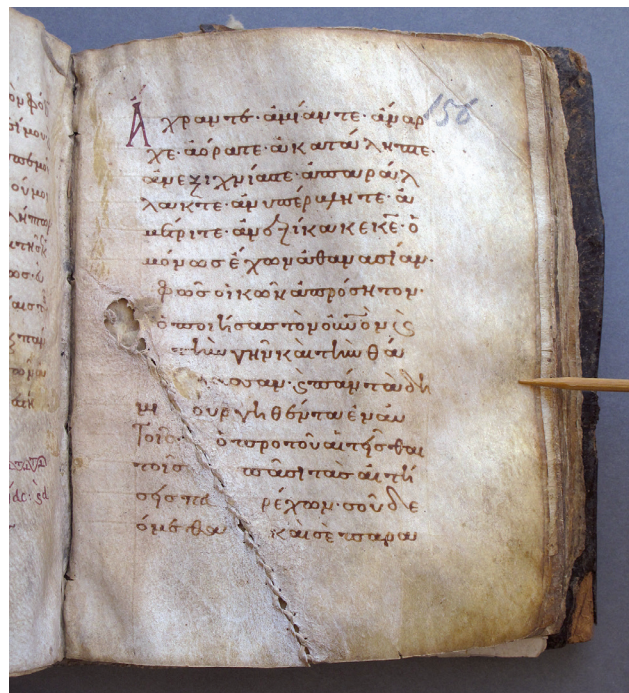 Ἄχραντε· ἀμίαντε· ἄναρ 156
χε· ἀόρατε· ἀκατάληπτε·
ἀνεξιχνίαστε· ἀπαράλ
λακτε· ἀνυπέρβλητε· ἀ
μέτριτε· ἀνεξίκακε κ̅ε̅· ὁ
μόνωσ ἔχων ἀθανασίαν·
φῶσ οἰκῶν ἀπρόσητον·
ὁ ποιήσασ τὸν οὐν̅ὸν ϗ
τὴν γῆν καὶ τὴν θά
λασσαν· ϗ πάντα τὰ δη
μι ουργηθέντα ἐν αὐ
τοῖσ· ὁ προ τοῦ αἰτῆσθαι
τοῖσ πᾶσι τὰσ αἰτή
σησ πα ρέχων· σοῦ δε
όμεθα καὶ σὲ παρα